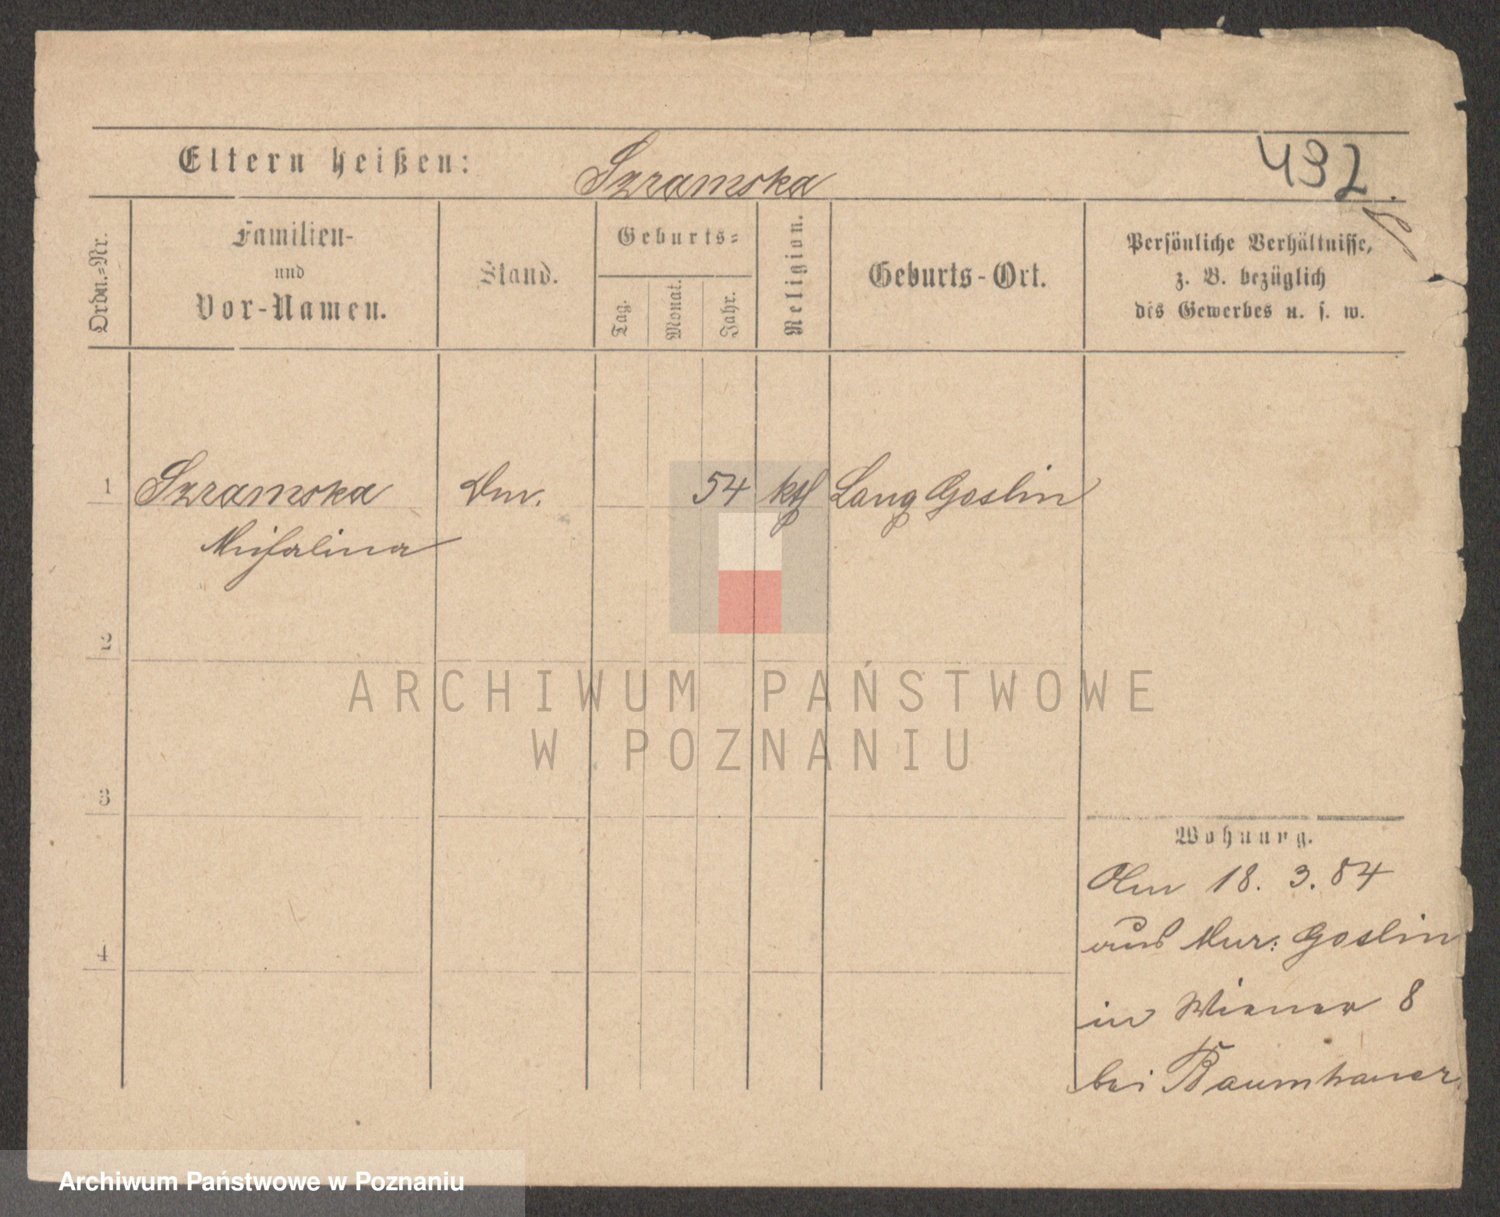 Eltern heißen:
Szramska
432.
Ordn.-Nr.
Familien-
und
Vor-Namen.
Stand.
Geburts-
Tag.
Monat.
Jahr.
Religion.
Geburts-Ort.
Persönliche Verhältnisse,
z. B. bezüglich
des Gewerbes u. s. w.
1 Szramska Dm. 54 kth Lang Goslin
Michalina
2
ARCHIWUM PAŃSTWOWE
W POZNANIU
3
Wohnung.
Am 18. 3. 84
aus Mur: Goslin
4
in Wiener 8
bei Baumhauer
Archiwum Państwowe w Poznaniu